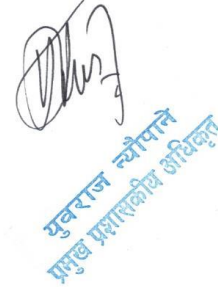 युवराज न्यौपाने
प्रमुख प्रशासकीय अधिकृत